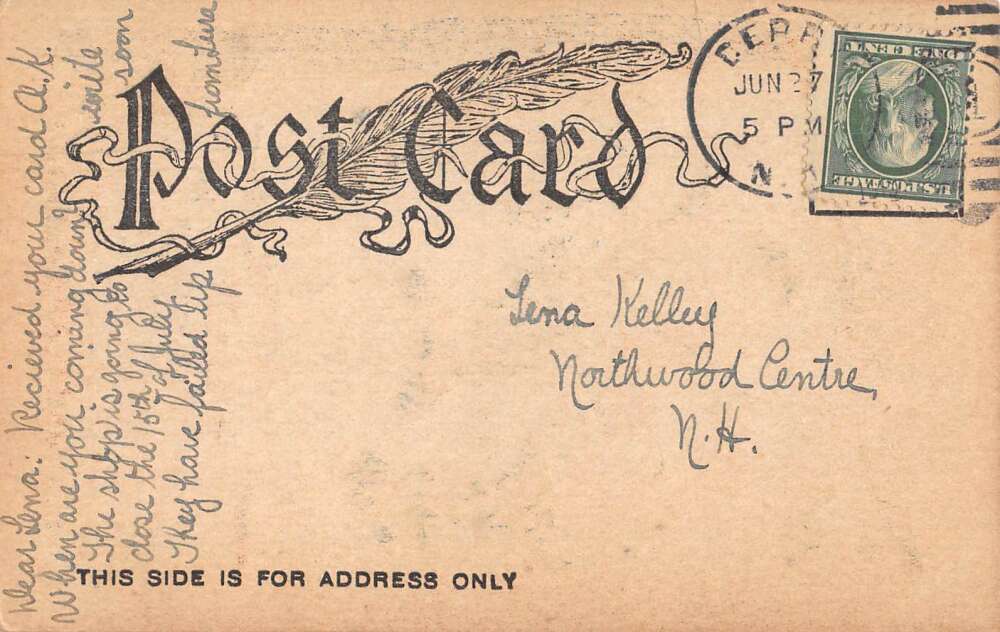 Post Card
DERR
JUN 27
5 PM
N.
U.S. POSTAGE
ONE CENT
Lena Kelley
Northwood Centre,
N.H.
Dear Lena: Recieved your card O.K.
When are you coming down? write
The shop is going to soon
close the 15th of July
They have failed up from Lura
THIS SIDE IS FOR ADDRESS ONLY